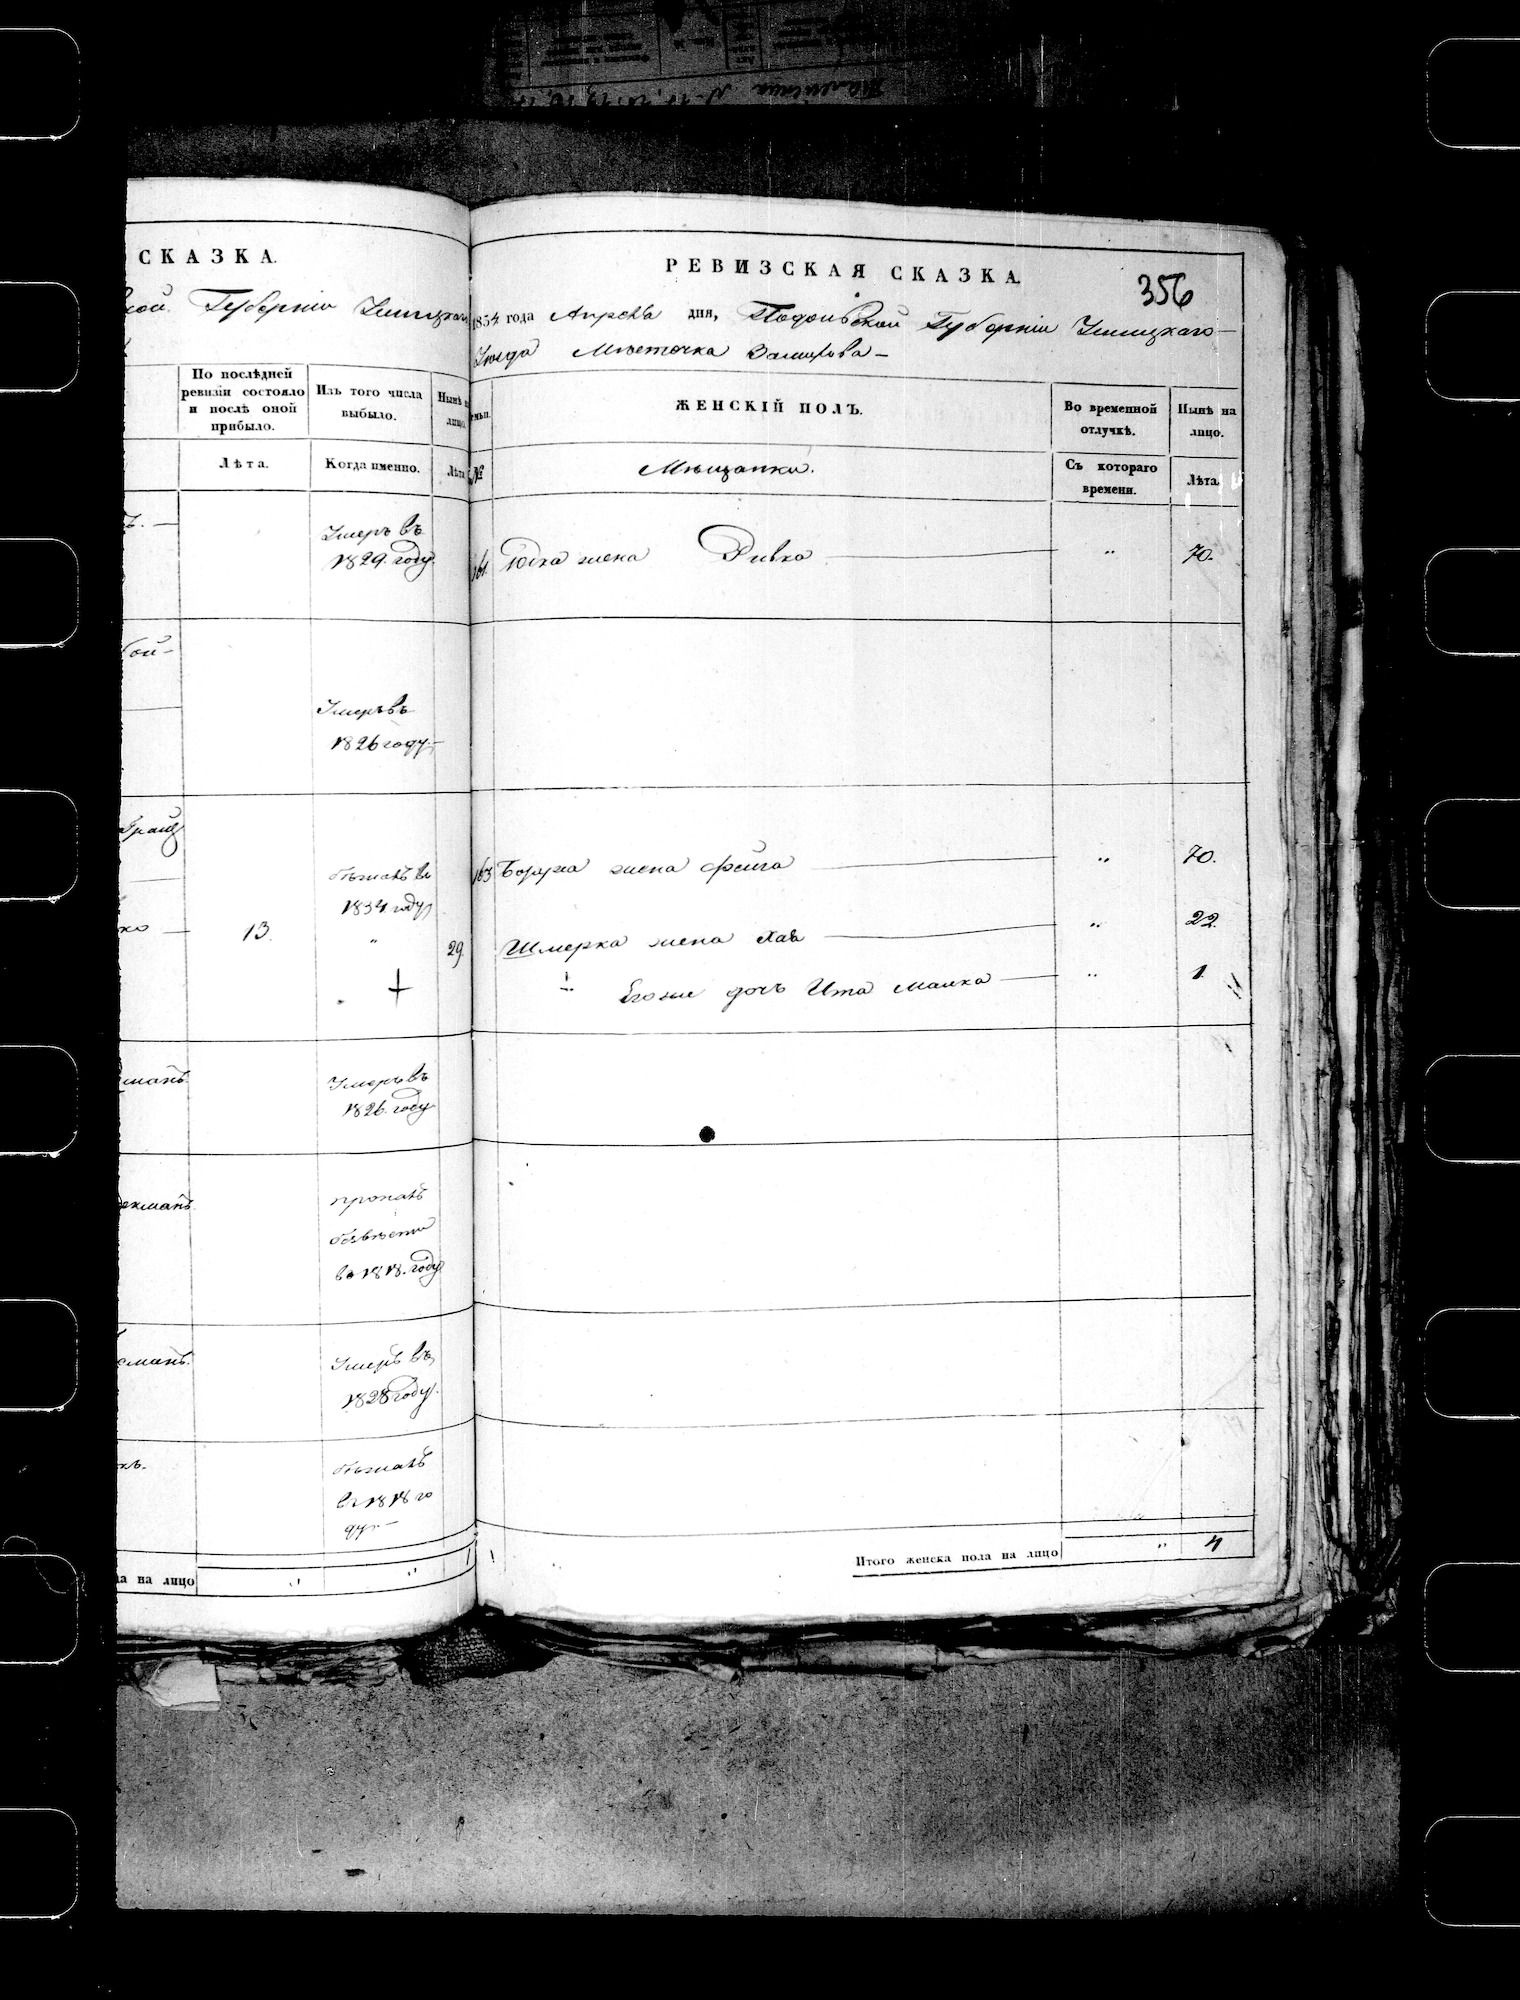 СКАЗКА.
Губерніи Ушицкаго
По послѣдней
ревизіи состояло
и послѣ оной
прибыло.
Изъ того числа
выбыло.
Нынѣ н
лицо.
Лѣта.
Когда именно.
Лѣта
Умеръ въ
1829. году.
Умеръ въ
1826 году.
бѣжалъ въ
1834. году
13. " 29.
манъ.
Умеръ въ
1826. году
пропалъ
безвѣстно
въ 1818. году
Умеръ въ
1828 году.
бѣжалъ
въ 1818 го
ду.
на лицо " "
РЕВИЗСКАЯ СКАЗКА.
356
1834 года Апрѣля дня, Подольской Губерніи Ушицкаго
Уѣзда Мѣстечка Замихова
ЖЕНСКІЙ ПОЛЪ.
Во временной
отлучкѣ.
Нынѣ на
лицо.
№
Мѣщанки.
Съ котораго
времени.
Лѣта.
Юдка жена Ривка " 70.
163 Борука жена Фейга " 70.
Шмерка жена Хая " 22.
Его же дочь Ита Малка " 1.
Итого женска пола на лицо " 4